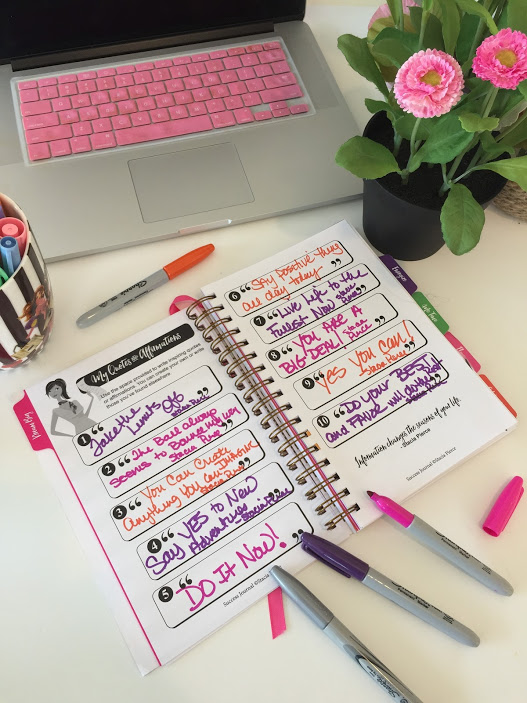 My Quotes & Affirmations
Use the space provided to write inspiring quotes
or affirmations. You can create your own or write
those you've found elsewhere.
1 "Take the
Limits Off"
Stacia Pierce
2 "The Ball always
Seems to Bounce my way
Stacia Pierce"
3 "You Can Create
Anything You Can IMAGINE
Stacia Pierce"
4 "Say YES to New
Adventures Stacia Pierce"
5 "DO It Now!"
Success Journal ©Stacia Pierce
6 "Say Positive things
all day today"
7 "Live Life to the
Fullest Now Stacia
Pierce"
8 "YOU ARE A
BIG DEAL! Stacia
Pierce"
9 "Yes You Can!
Stacia Pierce"
10 "DO Your BEST
and FAVOR will do the Rest
Stacia Pierce"
Information changes the seasons of your life.
-Stacia Pierce
Success Journal ©Stacia Pierce
Sharpie